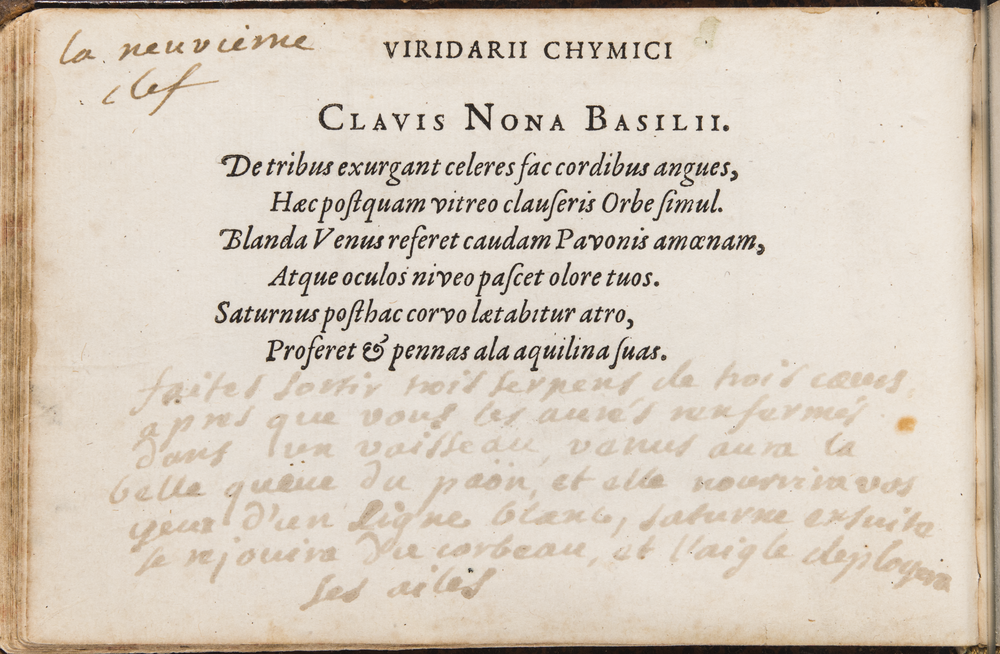 la neuvieme
clef
VIRIDARII CHYMICI
CLAVIS NONA BASILII.
De tribus exurgant celeres fac cordibus angues,
Hæc poſtquam vitreo clauſeris Orbe ſimul.
Blanda Venus referet caudam Pavonis amœnam,
Atque oculos niveo paſcet olore tuos.
Saturnus poſthac corvo lætabitur atro,
Proferet & pennas ala aquilina ſuas.
faites sortir trois serpens de trois cœurs,
apres que vous les aurés renfermés
dans un vaisseau, venus aura la
belle queue du paön, et elle nourrira vos
yeux d'un signe blanc, saturne ensuite
se rejouira du corbeau, et l'aigle deployera
ses ailes